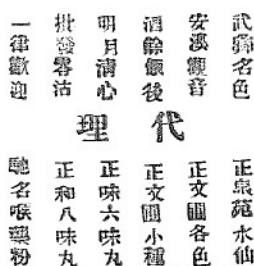 武彝名色
安溪觀音
酒餘飯後
明月清心
批發零沽
一律歡迎
代理
正泉苑水仙
正文圃各色
正文圃小種
正味六味丸
正和八味丸
馳名喉藥粉